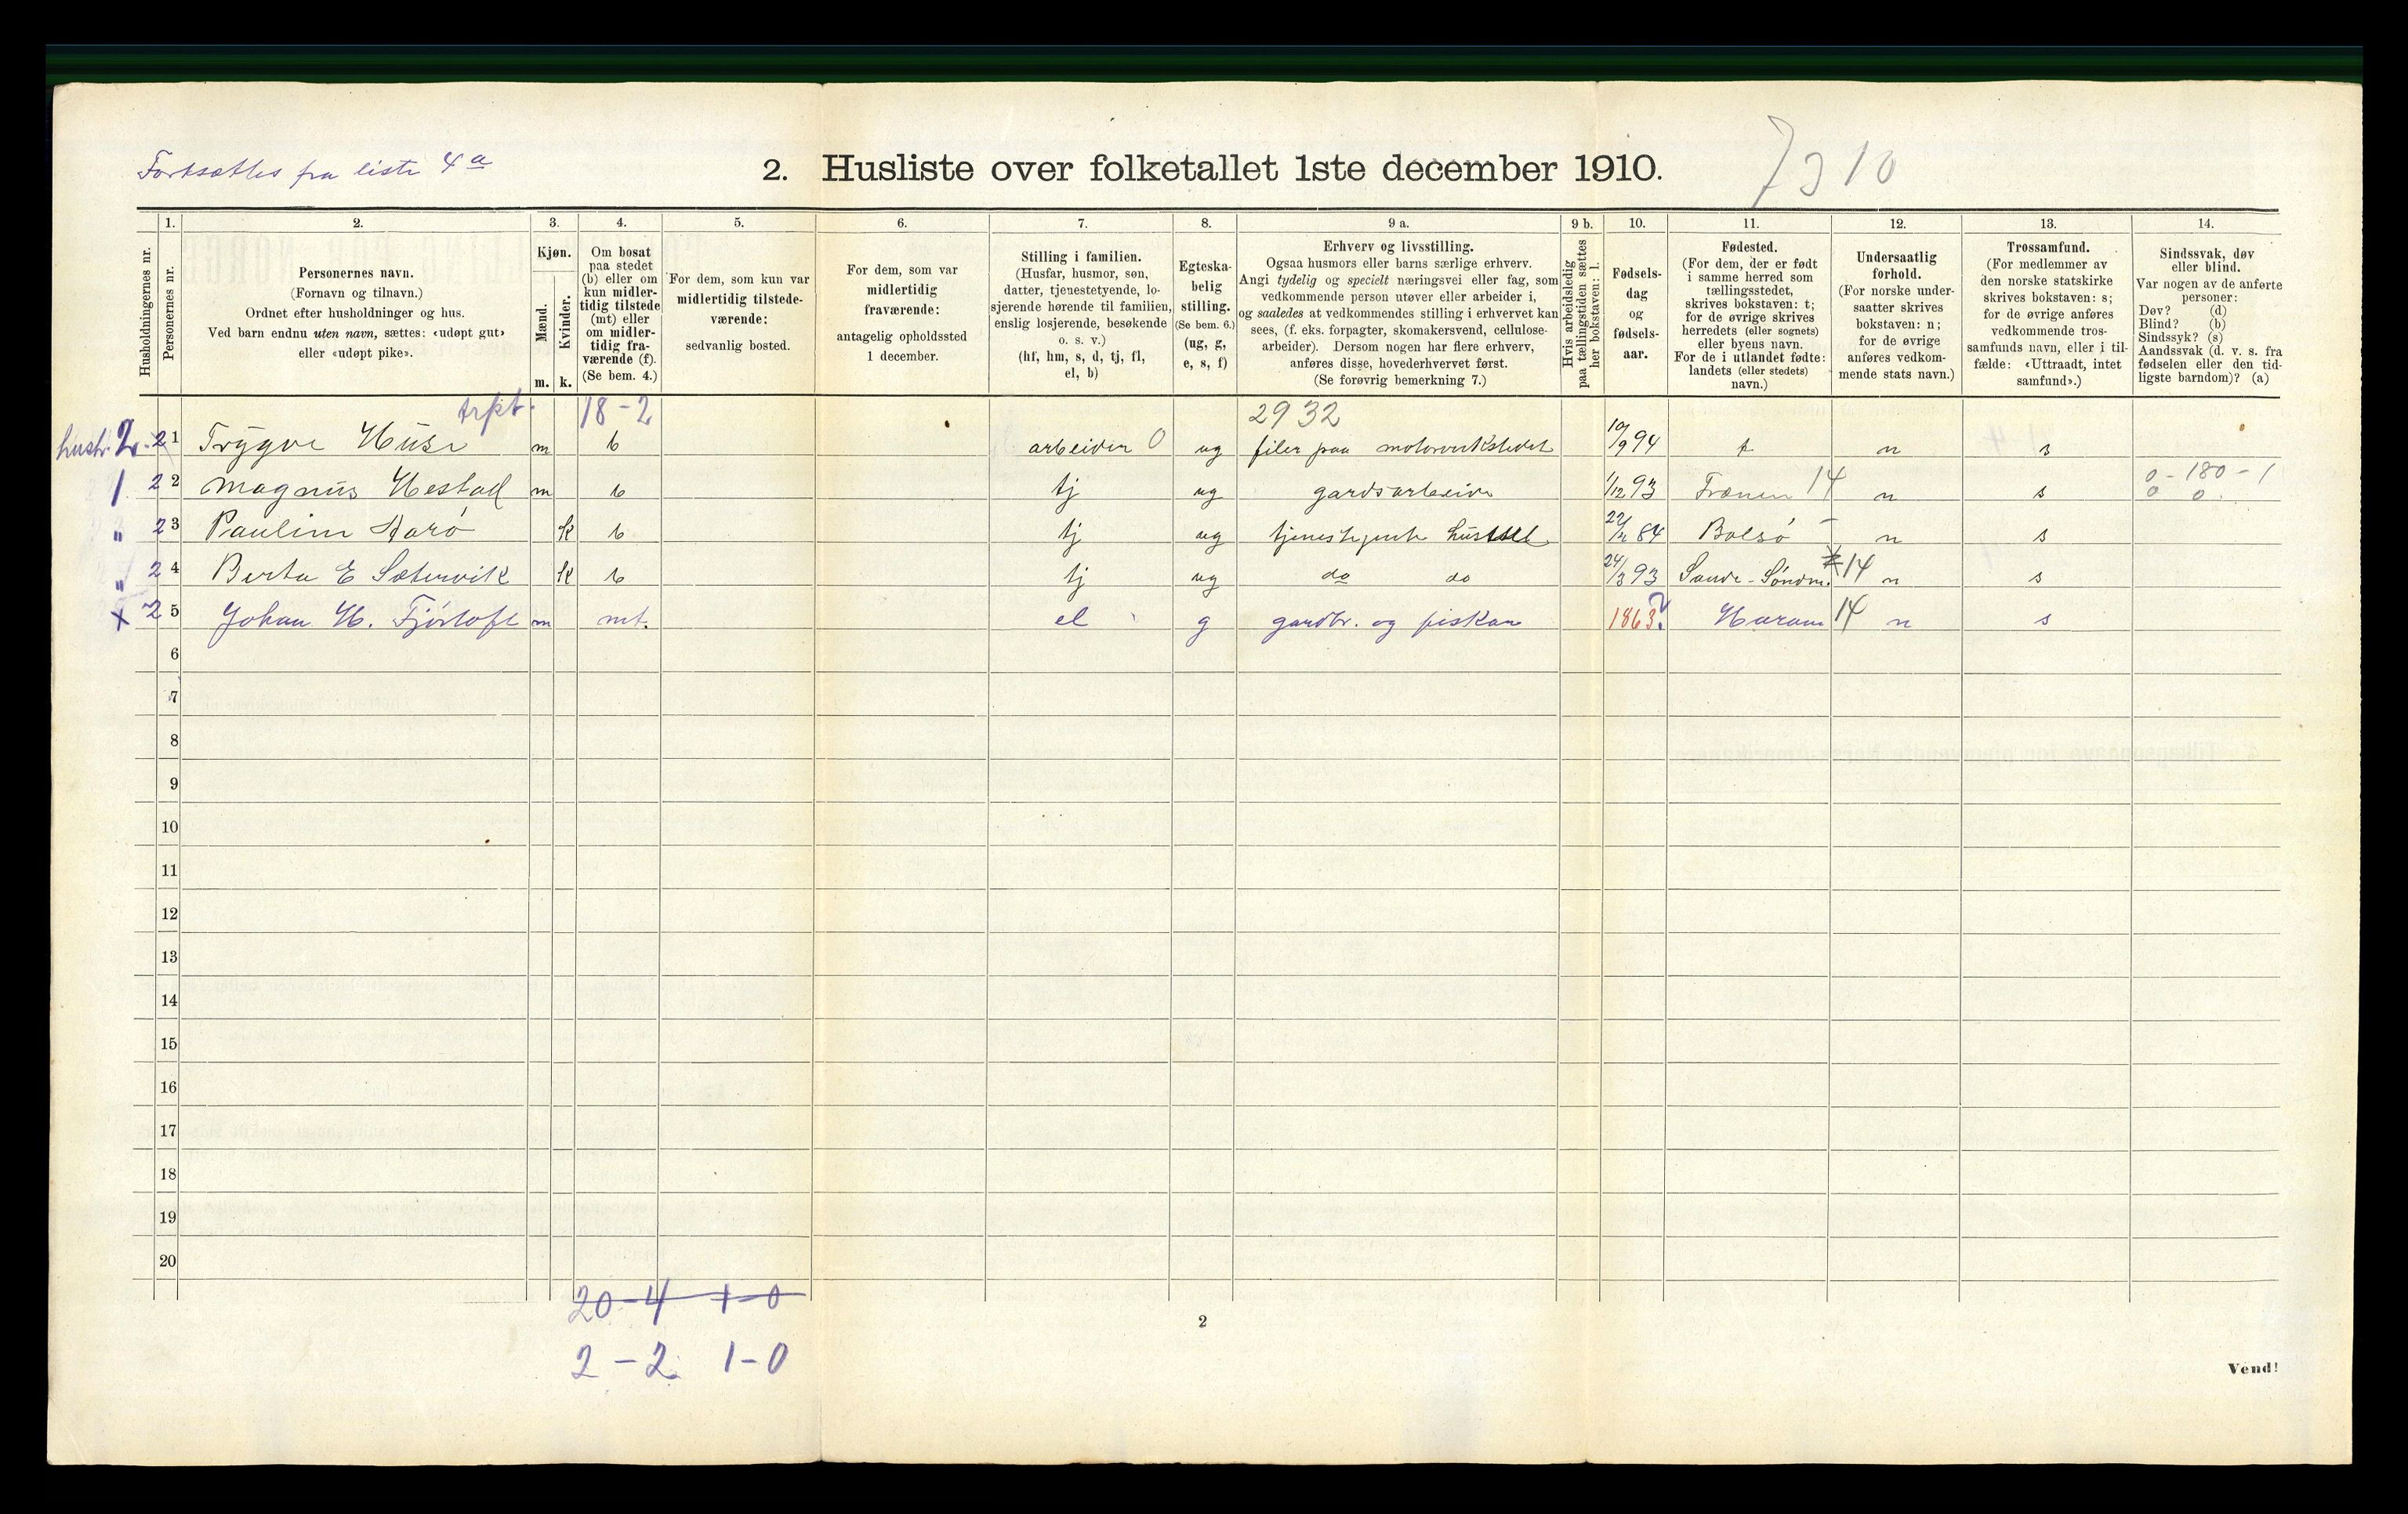 Fortsættes fra liste 4 a
2. Husliste over folketallet 1ste december 1910.
7310
1. 2. 3. 4. 5. 6. 7. 8. 9 a. 9 b. 10. 11. 12. 13. 14.
Husholdningernes nr.
Personernes nr.
Personernes navn.
(Fornavn og tilnavn.)
Ordnet efter husholdninger og hus.
Ved barn endnu uten navn, sættes: «udøpt gut»
eller «udøpt pike».
Kjøn.
Mænd.
Kvinder.
m. k.
Om bosat
paa stedet
(b) eller om
kun midler-
tidig tilstede
(mt) eller
om midler-
tidig fra-
værende (f).
(Se bem. 4.)
For dem, som kun var
midlertidig tilstede-
værende:
sedvanlig bosted.
For dem, som var
midlertidig
fraværende:
antagelig opholdssted
1 december.
Stilling i familien.
(Husfar, husmor, søn,
datter, tjenestetyende, lo-
sjerende hørende til familien,
enslig losjerende, besøkende
o. s. v.)
(hf, hm, s, d, tj, fl,
el, b)
Egteska-
belig
stilling.
(Se bem. 6.)
(ug, g,
e, s, f)
Erhverv og livsstilling.
Ogsaa husmors eller barns særlige erhverv.
Angi tydelig og specielt næringsvei eller fag, som
vedkommende person utøver eller arbeider i,
og saaledes at vedkommendes stilling i erhvervet kan
sees, (f. eks. forpagter, skomakersvend, cellulose-
arbeider). Dersom nogen har flere erhverv,
anføres disse, hovederhvervet først.
(Se forøvrig bemerkning 7.)
Hvis arbeidsledig
paa tællingstiden sættes
her bokstaven: l.
Fødsels-
dag
og
fødsels-
aar.
Fødested.
(For dem, der er født
i samme herred som
tællingsstedet,
skrives bokstaven: t;
for de øvrige skrives
herredets (eller sognets)
eller byens navn.
For de i utlandet fødte:
landets (eller stedets)
navn.)
Undersaatlig
forhold.
(For norske under-
saatter skrives
bokstaven: n;
for de øvrige
anføres vedkom-
mende stats navn.)
Trossamfund.
(For medlemmer av
den norske statskirke
skrives bokstaven: s;
for de øvrige anføres
vedkommende tros-
samfunds navn, eller i til-
fælde: «Uttraadt, intet
samfund».)
Sindssvak, døv
eller blind.
Var nogen av de anførte
personer:
Døv? (d)
Blind? (b)
Sindssyk? (s)
Aandssvak (d. v. s. fra
fødselen eller den tid-
ligste barndom)? (a)
18-2 2932
2. 21 Trygve Huse m b arbeider 0 ug filer paa motorverkstedet 10/9 94 t n s
1 22 Magnus Hestad m b tj ug gardsarbeider 1/12 93 Frænen 14 n s 0-180-1
0 0
" 23 Pauline Harø k b tj ug tjenestejente husstel 84 Bolsø - n s
" 24 Berta E Sætervik k b tj ug do do 24/3 93 Sande-Søndm. 14 n s
x 25 Johan H. Fjørtoft m mt. el g gardbr. og fisker 1863. Haram 14 n s
6
7
8
9
10
11
12
13
14
15
16
17
18
19
20
20-4 1-0
2
2-2 1-0
Vend!